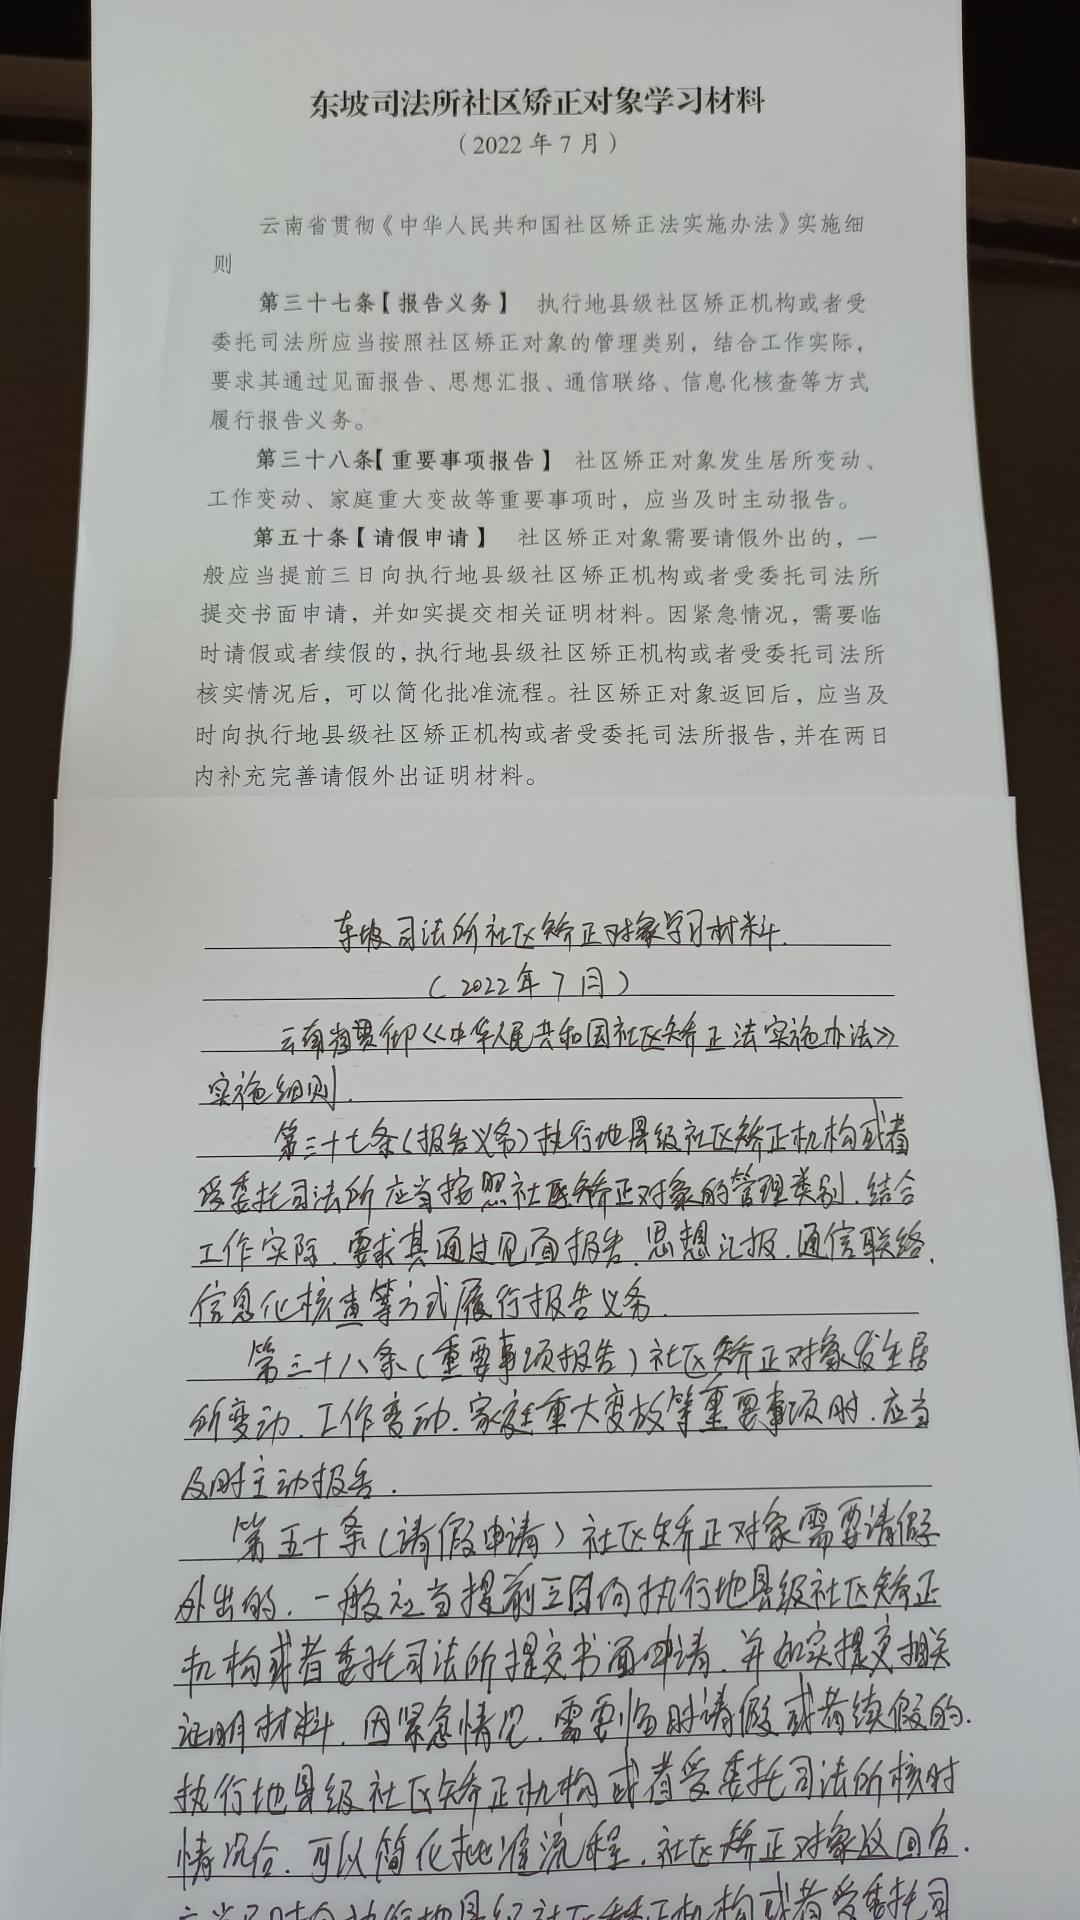 东坡司法所社区矫正对象学习材料
（2022年7月）
云南省贯彻《中华人民共和国社区矫正法实施办法》实施细
则
第三十七条【报告义务】 执行地县级社区矫正机构或者受
委托司法所应当按照社区矫正对象的管理类别，结合工作实际，
要求其通过见面报告、思想汇报、通信联络、信息化核查等方式
履行报告义务。
第三十八条【重要事项报告】 社区矫正对象发生居所变动、
工作变动、家庭重大变故等重要事项时，应当及时主动报告。
第五十条【请假申请】 社区矫正对象需要请假外出的，一
般应当提前三日向执行地县级社区矫正机构或者受委托司法所
提交书面申请，并如实提交相关证明材料。因紧急情况，需要临
时请假或者续假的，执行地县级社区矫正机构或者受委托司法所
核实情况后，可以简化批准流程。社区矫正对象返回后，应当及
时向执行地县级社区矫正机构或者受委托司法所报告，并在两日
内补充完善请假外出证明材料。
东坡司法所社区矫正对象学习材料.
(2022年7月)
云南省贯《中华人民共和国社区矫正法实施办法》
实施细则.
第三十七条(报告义务)执行地县级社区矫正机构或者
受委托司法所应当按照社区矫正对象的管理类别.结合
工作实际.要求其通过见面报告.思想汇报.通信联络.
信息化核查等方式履行报告义务.
第三十八条(重要事项报告)社区矫正对象发生居
所变动.工作变动.家庭重大变故等重要事项时.应当
及时主动报告.
第五十条(请假申请)社区矫正对象需要请假
外出的.一般应当提前三日向执行地县级社区矫正
机构或者委托司法所提交书面申请.并如实提交相关
证明材料.因紧急情况.需要临时请假或者续假的.
执行地县级社区矫正机构或者受委托司法所核时
情况合.可以简化批准流程.社区矫正对象返回后.
应当及时向执行地县级社区矫正机构或者受委托司